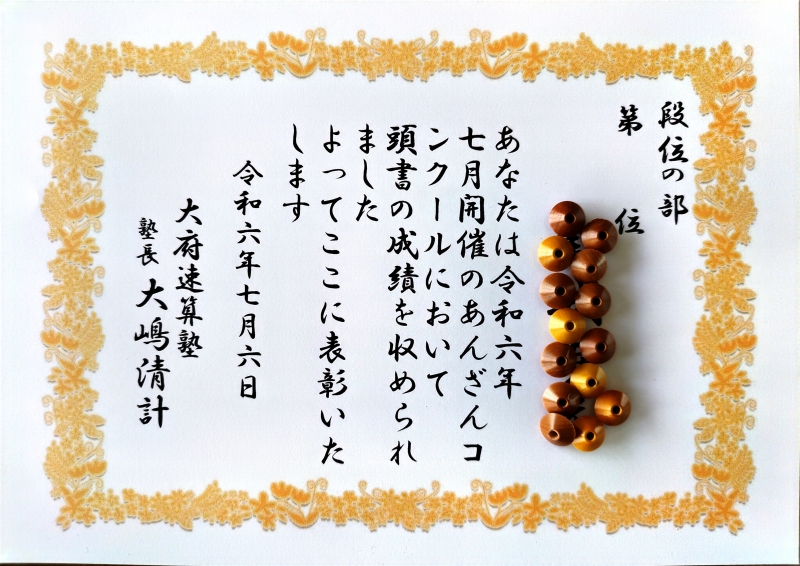 段位の部
第　位
あなたは令和六年
七月開催のあんざんコ
ンクールにおいて
頭書の成績を収められ
ました
よってここに表彰いた
します
令和六年七月六日
大府速算塾
塾長 大嶋清計